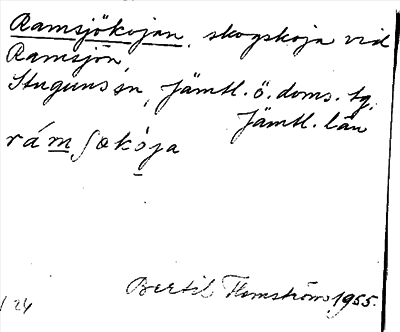 Ramsjökojan, skogskoja vid
Ramsjön,
Stuguns sn, Jämtl. ö. doms. tg,
Jämtl. län
rám ʃœkója
Bertil Flemström 1955.
/ 24